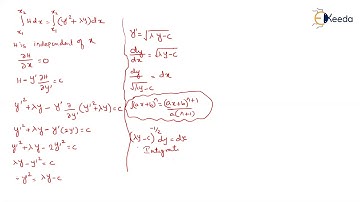 ∫_{x₁}^{x₂} H dx = ∫_{x₁}^{x₂} (y'² + λy) dx
H is independent of x
∂H/∂x = 0
H - y' ∂H/∂y' = c
y'² + λy - y' ∂/∂y' (y'² + λy) = c
y'² + λy - y'(2y') = c
y'² + λy - 2y'² = c
λy - y'² = c
- y'² = λy - c
y' = √(λy - c)
dy/dx = √(λy - c)
dy/√(λy - c) = dx
∫(ax+b)ⁿ = (ax+b)ⁿ⁺¹/a(n+1)
(λy - c)^{-1/2} dy = dx
Integrate
Ekeeda